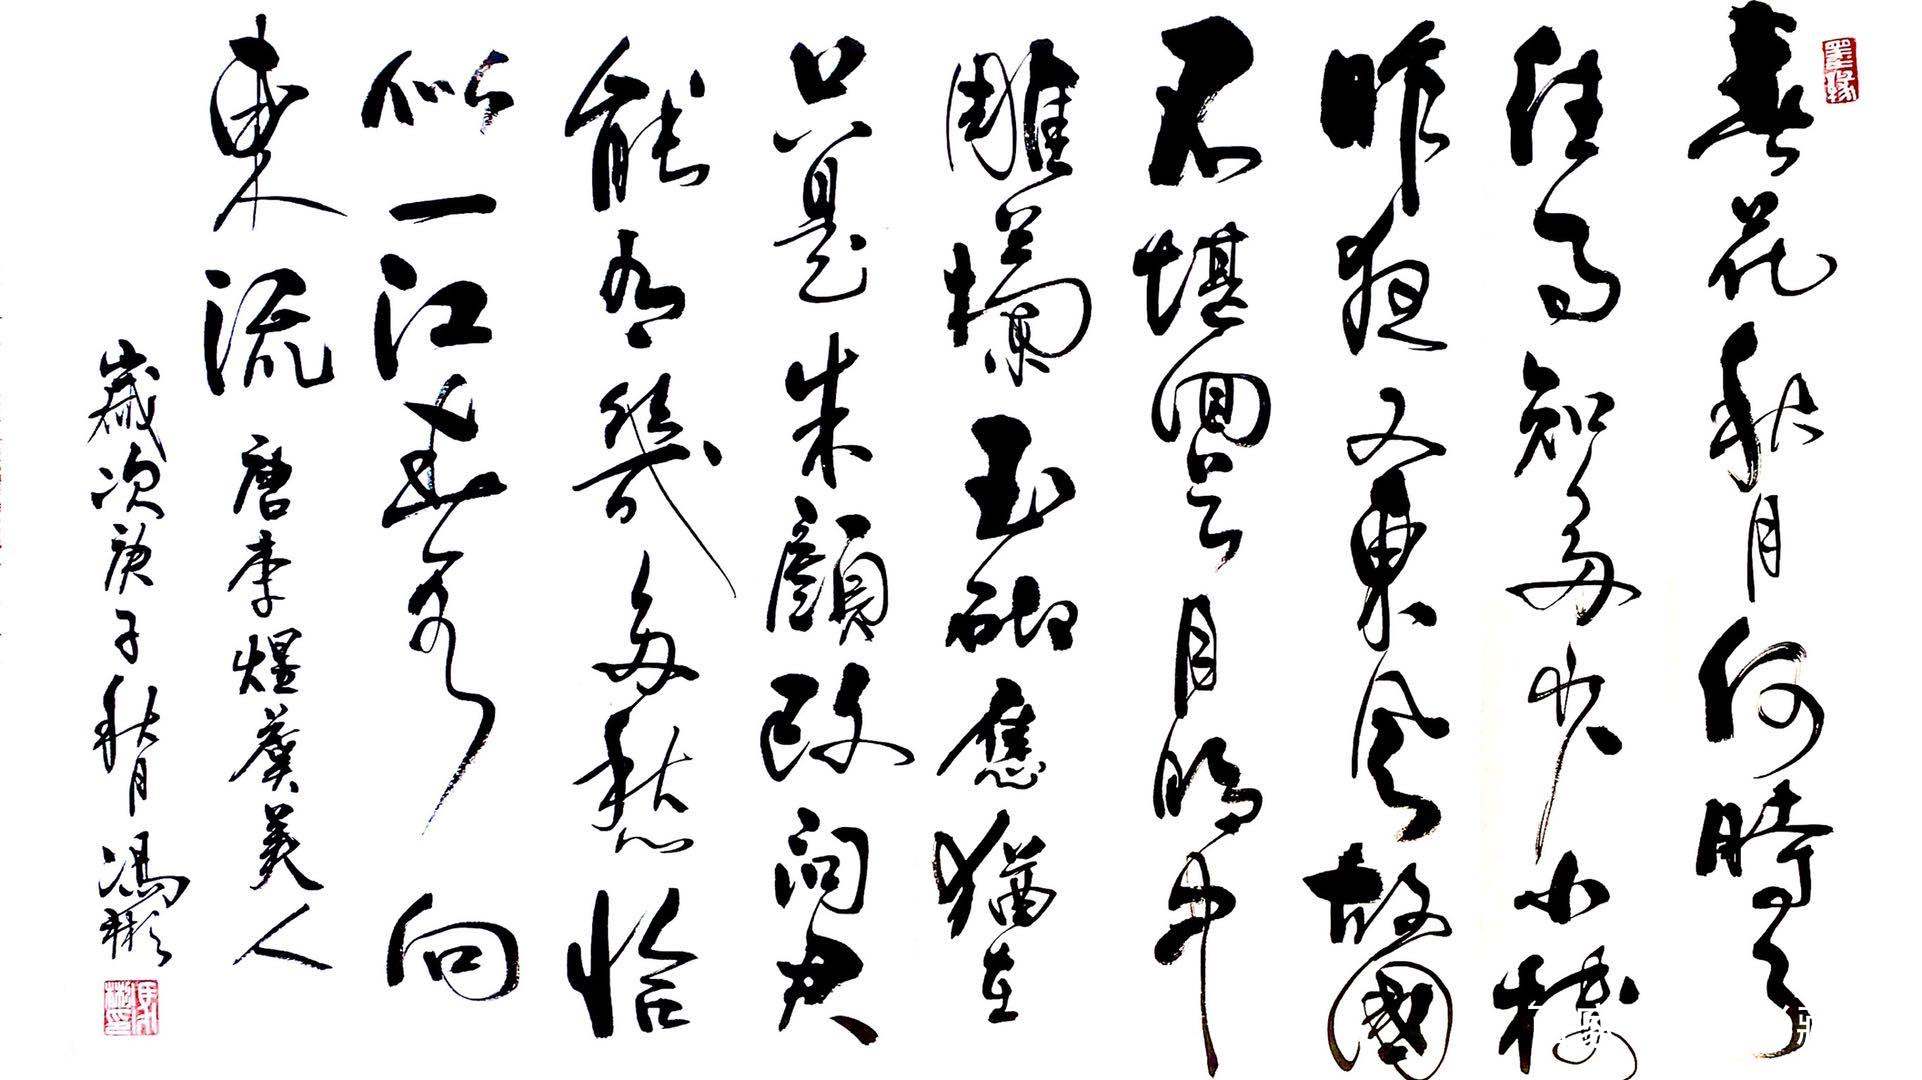 墨緣
春花秋月何時了
往事知多少小樓
昨夜又東風故國
不堪回首月明中
雕欄玉砌應猶在
只是朱顏改問君
能有幾多愁恰
似一江春水向
東流 唐李煜虞美人
歲次庚子秋月馮彬